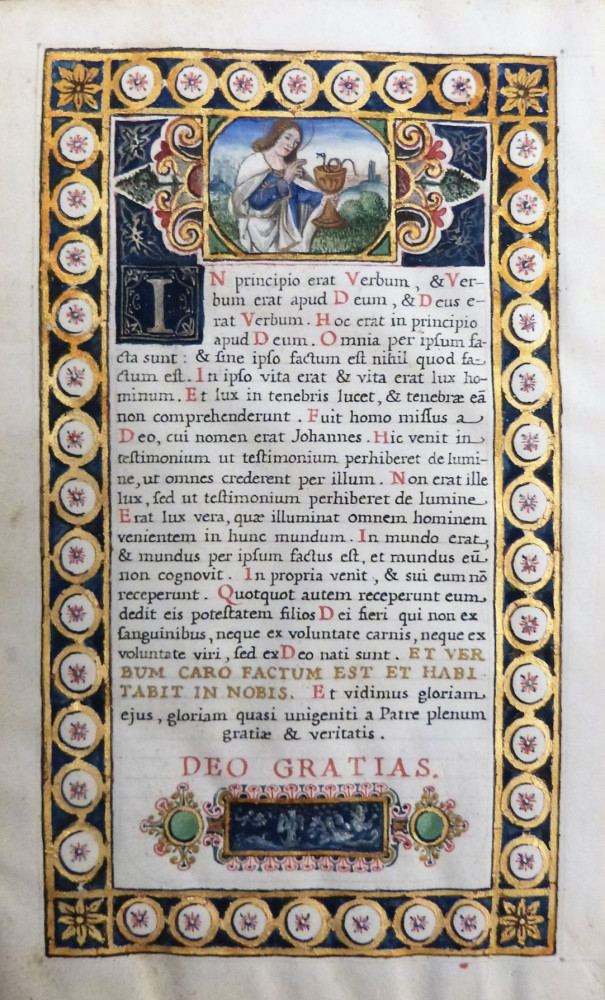 IN principio erat Verbum, & Ver-
bum erat apud Deum, & Deus e-
rat Verbum. Hoc erat in principio
apud Deum. Omnia per ipsum fa-
cta sunt: & sine ipso factum est nihil quod fa-
ctum est. In ipso vita erat & vita erat lux ho-
minum. Et lux in tenebris lucet, & tenebræ eã
non comprehenderunt. Fuit homo missus a
Deo, cui nomen erat Johannes. Hic venit in
testimonium ut testimonium perhiberet de lumi-
ne, ut omnes crederent per illum. Non erat ille
lux, sed ut testimonium perhiberet de lumine
Erat lux vera, quæ illuminat omnem hominem
venientem in hunc mundum. In mundo erat,
& mundus per ipsum factus est, et mundus eũ
non cognovit. In propria venit, & sui eum nõ
receperunt. Quotquot autem receperunt eum
dedit eis potestatem filios Dei fieri qui non ex
sanguinibus, neque ex voluntate carnis, neque ex
voluntate viri, sed ex Deo nati sunt. ET VER
BUM CARO FACTUM EST ET HABI
TABIT IN NOBIS. Et vidimus gloriam
ejus, gloriam quasi unigeniti a Patre plenum
gratiæ & veritatis.
DEO GRATIAS.